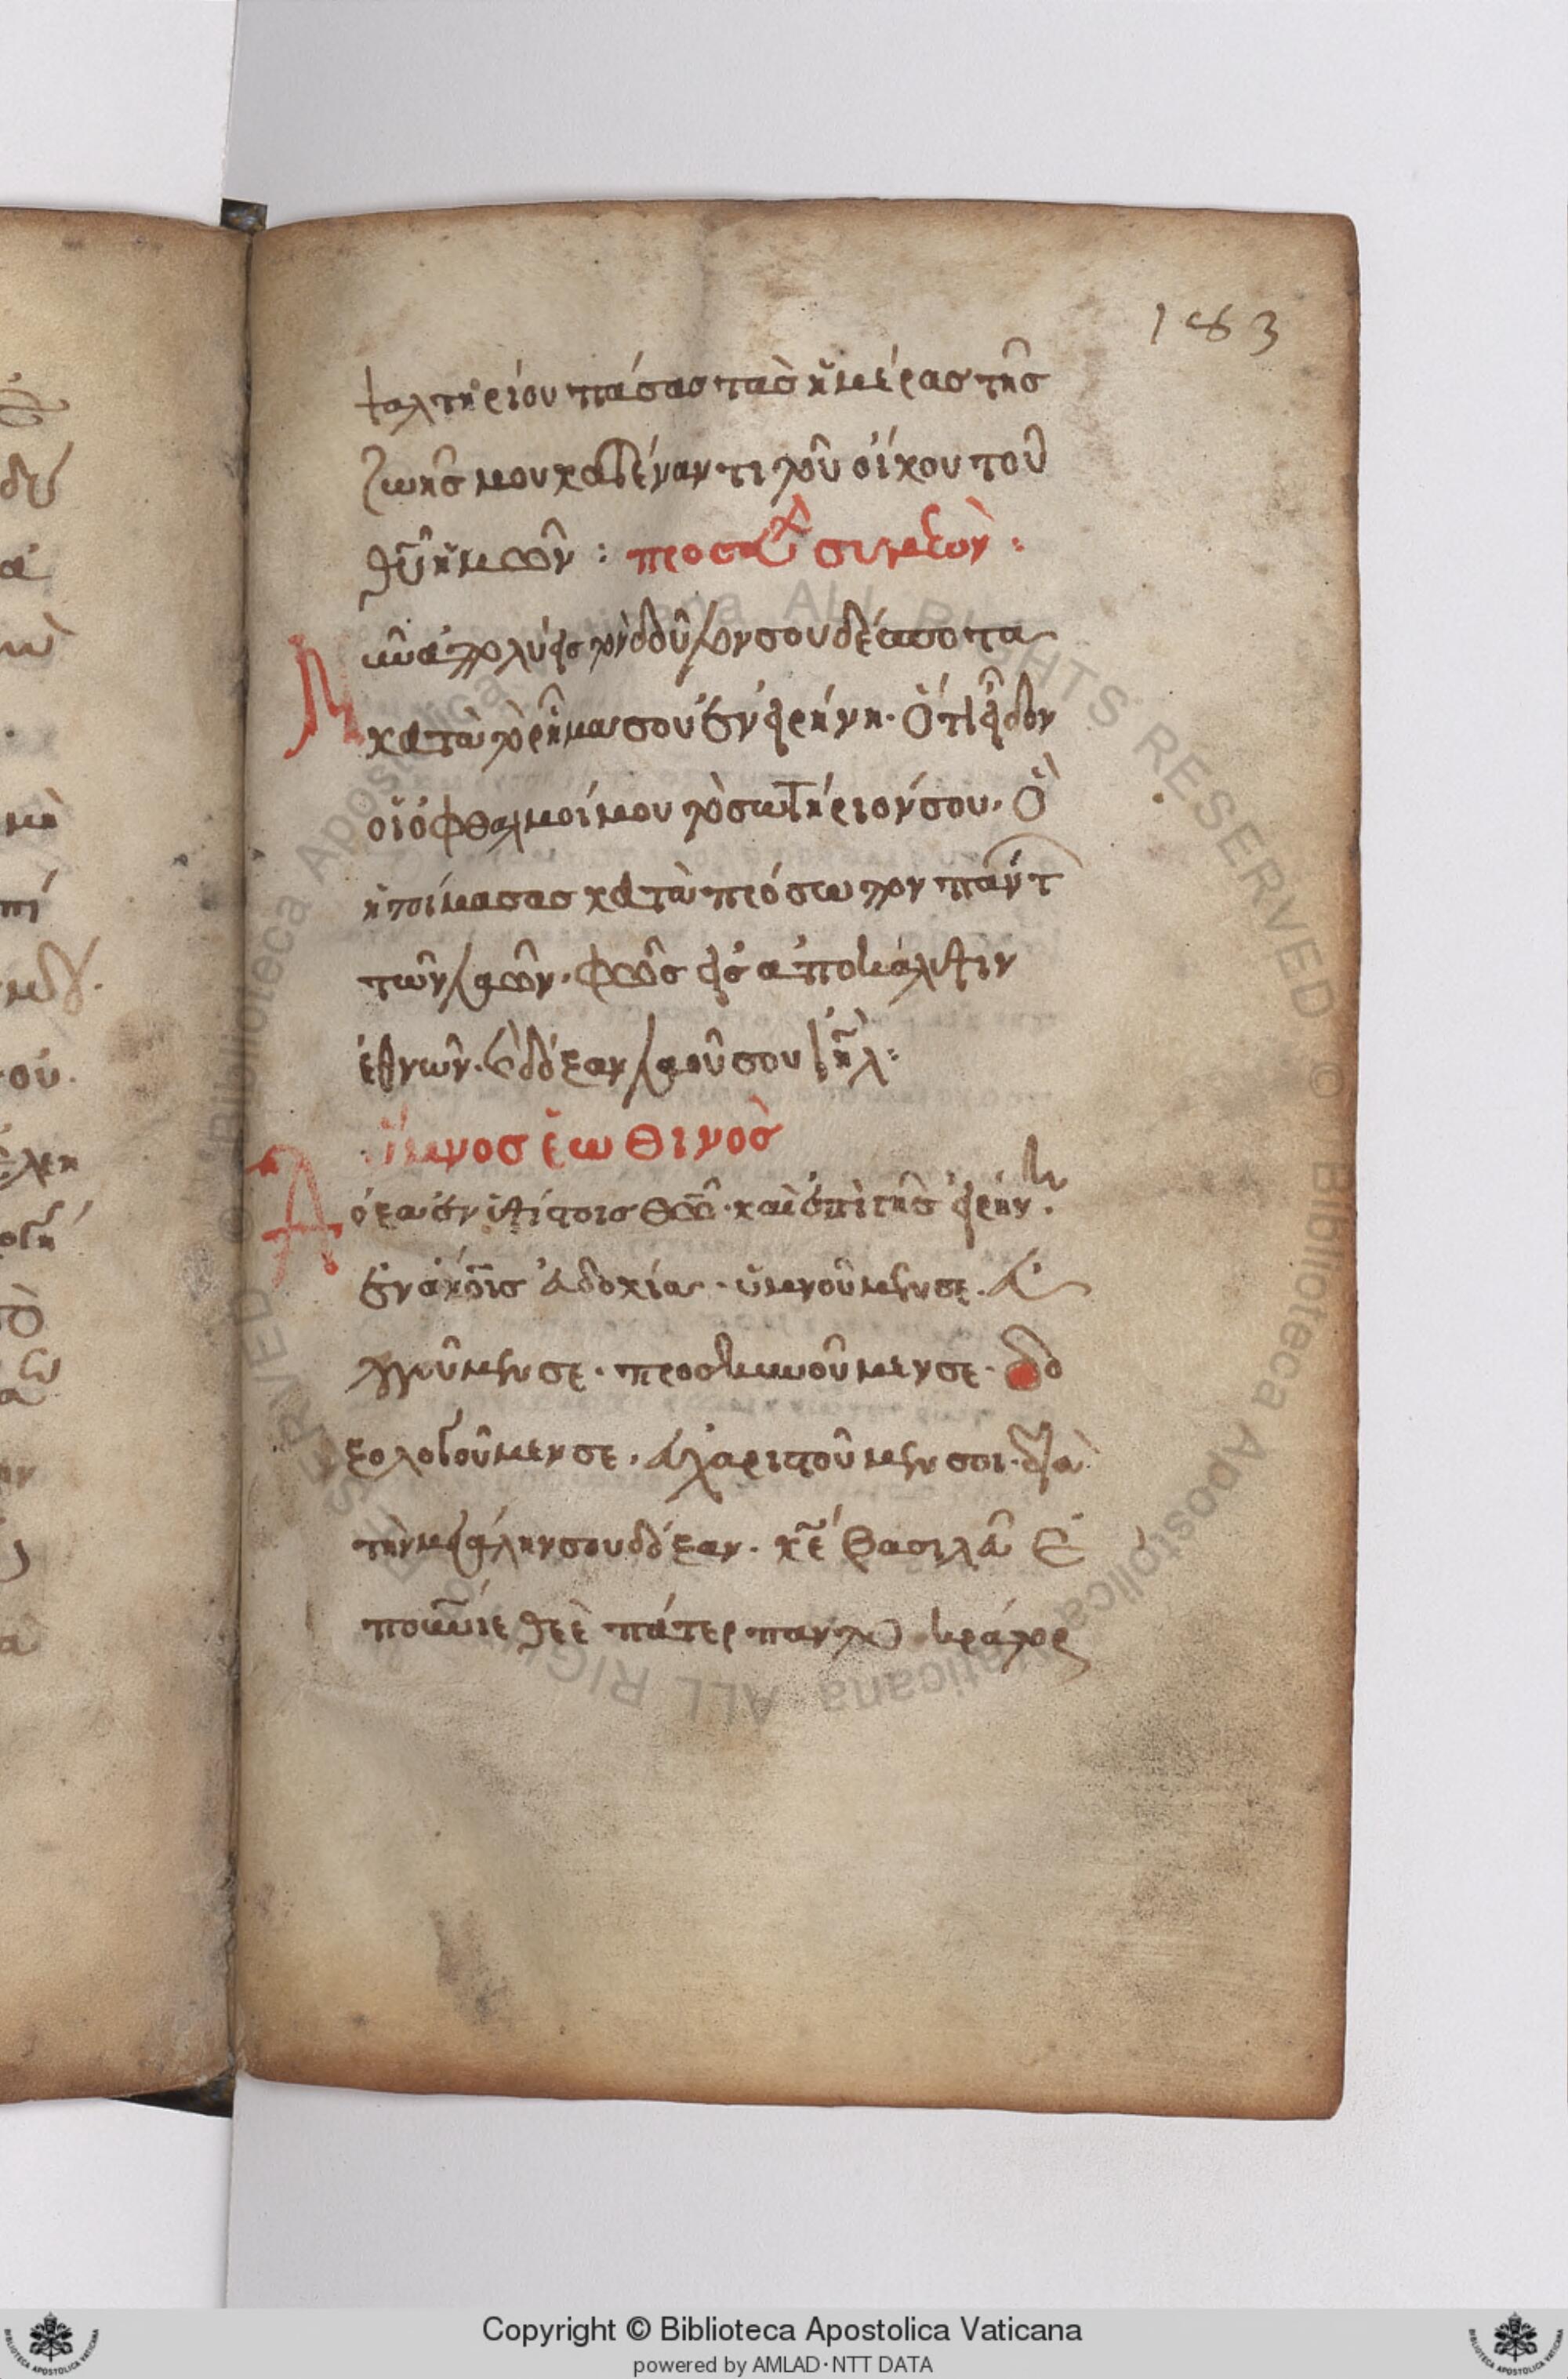 183
ψαλτηρίου πάσας τὰς ἡμέρας τῆς
ζωῆς μου κατέναντι τοῦ οἴκου τοῦ
θῦ ἡμῶν : προσευχ συμεὼν :
Νῦν ἀπολύεις τὸν δοῦλον σου δέσποτα
κατὰ τὸ ρῆμα σου ἐν εἰρήνη· ὅτι εἶδον
οἱ ὀφθαλμοί μου τὸ σωτήριόν σου· ὃ
ἡτοίμασας κατὰ πρόσωπον πάντ
τῶν λαῶν· φῶς εἰς ἀποκάλυψιν
ἐθνῶν· καὶ δόξαν λαοῦ σου ἰῆλ:
ὕμνος ἑωθινὸς
Δόξα ἐν ὑψίστοις θεῶ· καὶ ἐπὶ τῆς εἰρήν·
ἐν ἀνοῖς εὐδοκία· ὑμνοῦμεν σε· εὐ
λογοῦμεν σε· προσκυνοῦμεν σε· δο
ξολογοῦμεν σε· εὐχαριστοῦμεν σοι· διὰ
τὴν μεγάλην σου δόξαν· κε βασιλεῦ ἐ
πουνιε θεὲ πάτερ παντο κράτορ
Copyright © Biblioteca Apostolica Vaticana
powered by AMLAD·NTT DATA